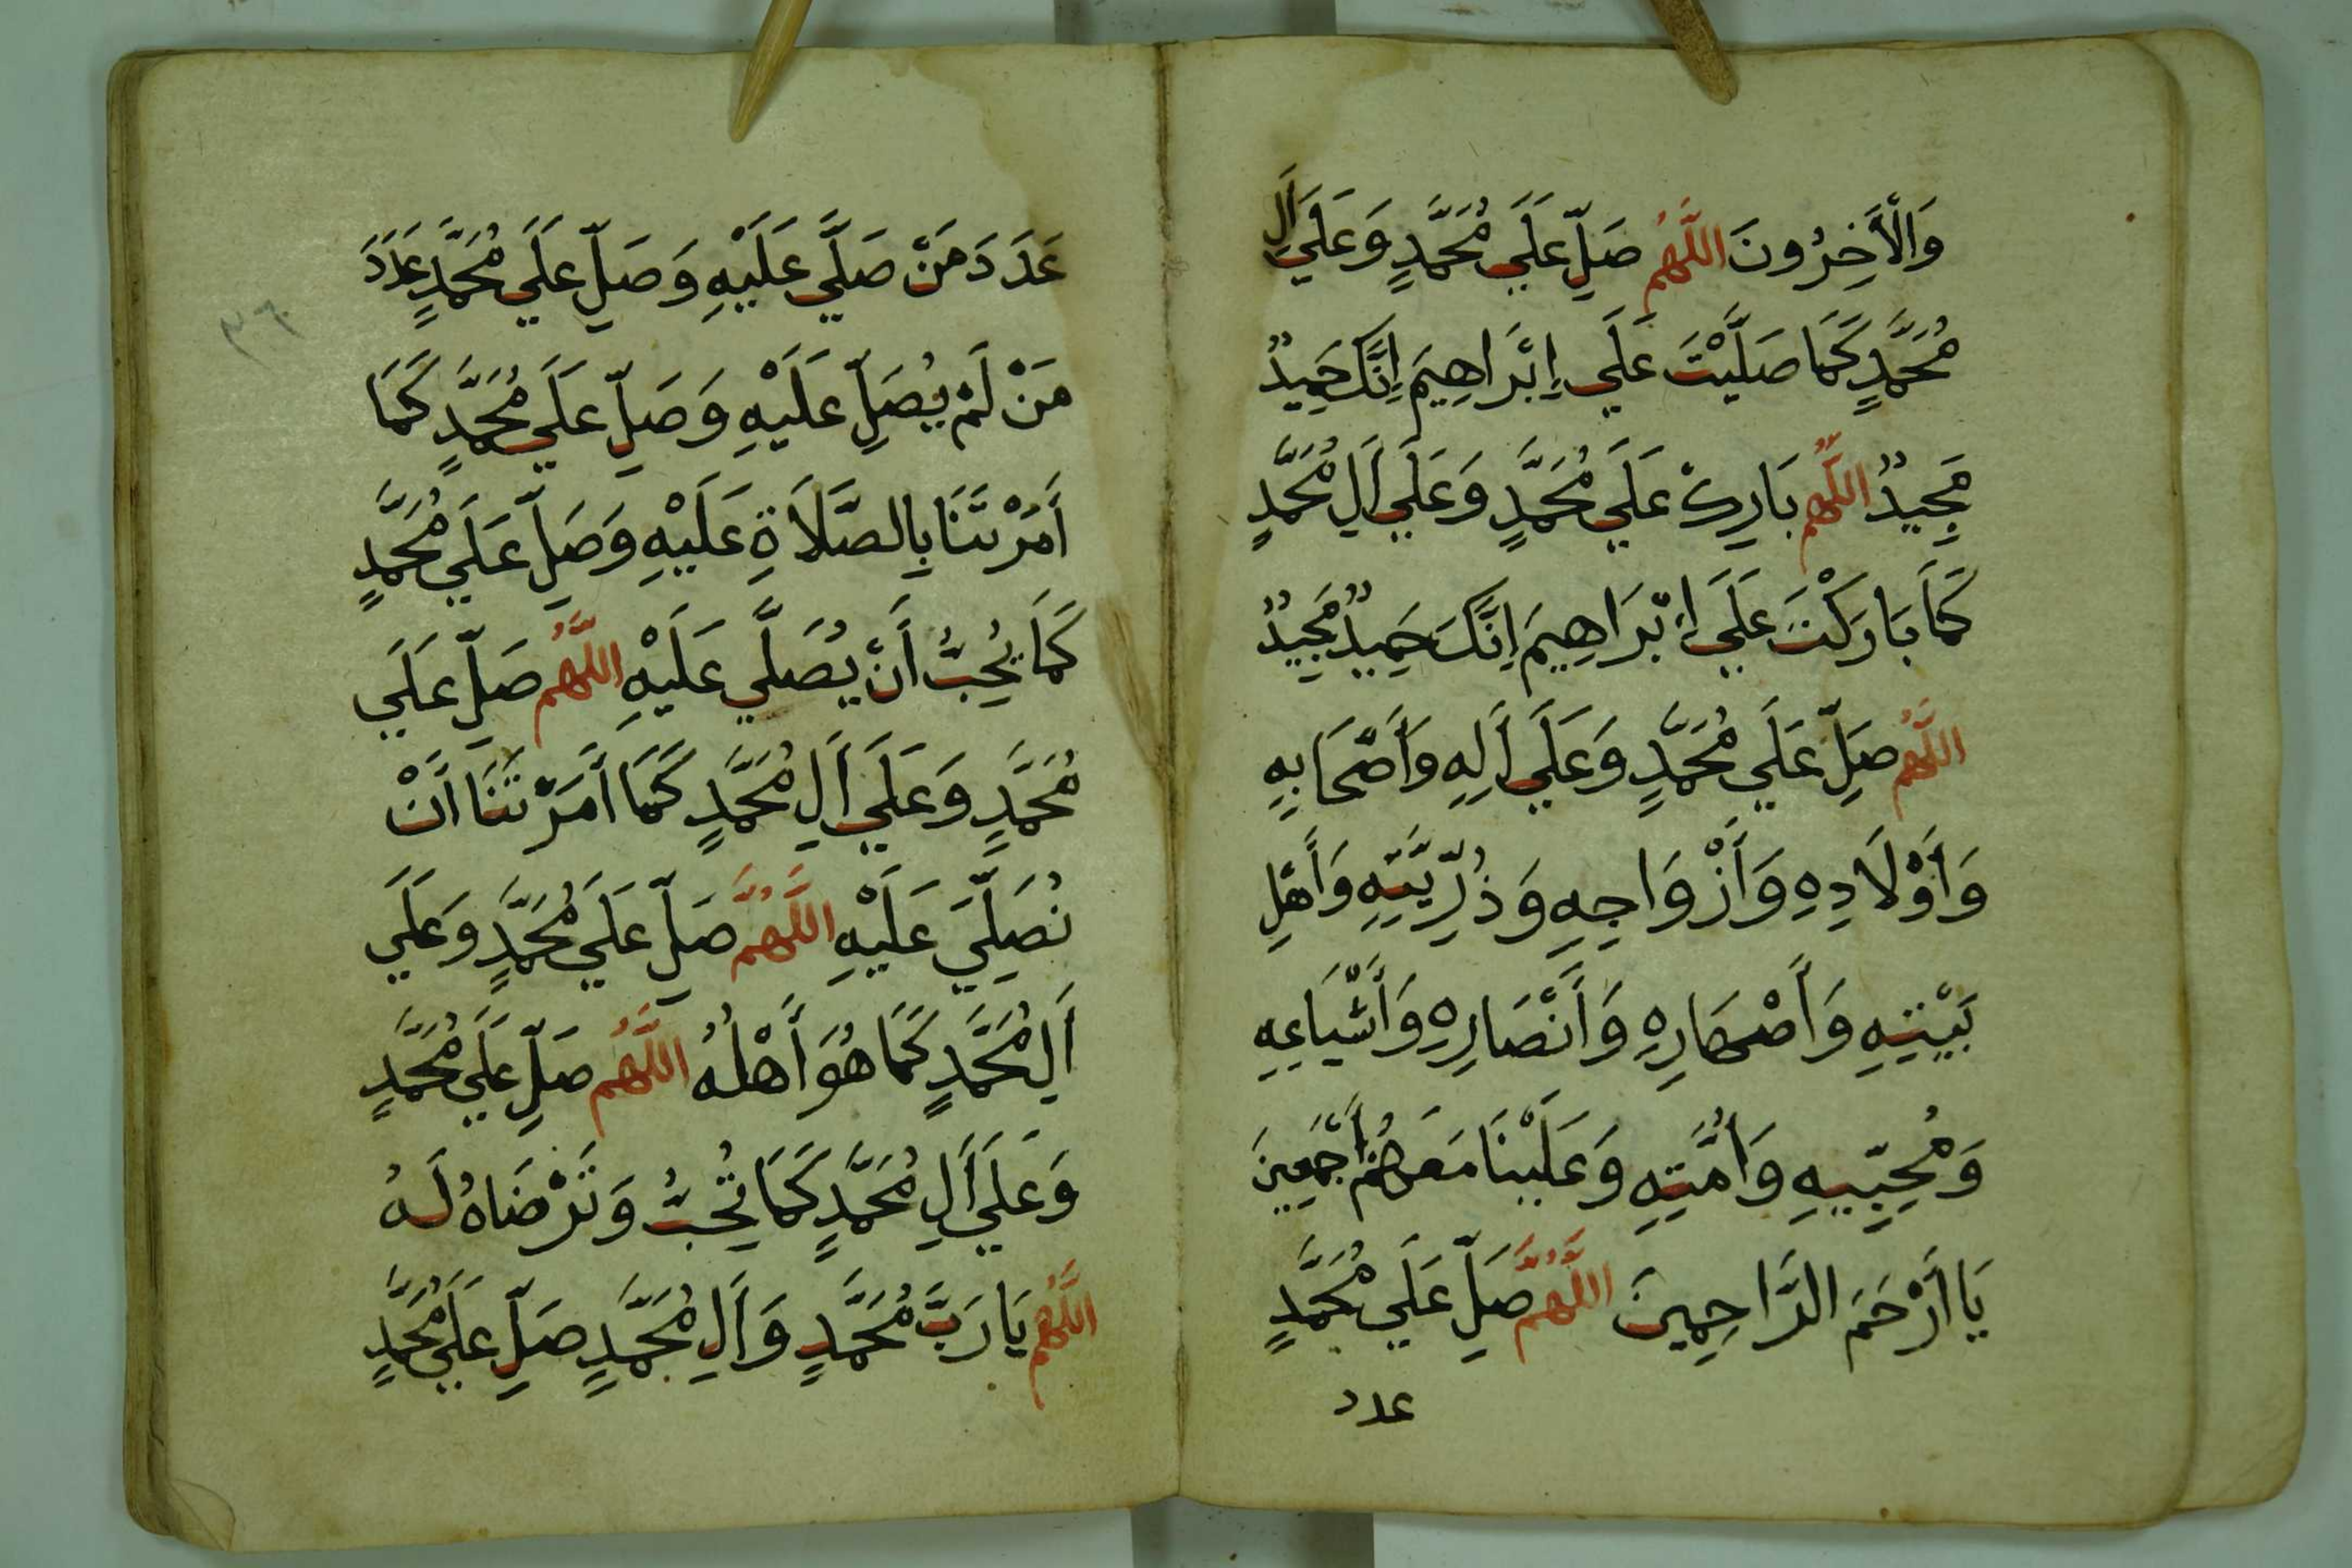 وَالْأَخِرُونَ اللَّهُمَّ صَلِّ عَلَي مُحَمَّدٍ وَعَلَي أَلِ
مُحَمَّدٍ كَمَا صَلَّيْتَ عَلَي إِبْرَاهِيمَ إِنَّكَ حَمِيدٌ
مَجِيدٌ اللَّهُمَّ بَارِكْ عَلَي مُحَمَّدٍ وَعَلَي أَلِ مُحَمَّدٍ
كَمَا بَارَكْتَ عَلَي إِبْرَاهِيمَ إِنَّكَ حَمِيدٌ مَجِيدٌ
اللَّهُمَّ صَلِّ عَلَي مُحَمَّدٍ وَعَلَي أَلِهِ وَأَصْحَابِهِ
وَأَوْلَادِهِ وَأَزْوَاجِهِ وَذُرِّيَّتِهِ وَأَهْلِ
بَيْتِهِ وَأَصْهَارِهِ وَأَنْصَارِهِ وَأَشْيَاعِهِ
وَمُحِبِّيهِ وَأُمَّتِهِ وَعَلَيْنَا مَعَهُمْ أَجْمَعِينَ
يَا أَرْحَمَ الرَّاحِمِينَ اللَّهُمَّ صَلِّ عَلَي مُحَمَّدٍ
عدد
عَدَدَ مَنْ صَلَّي عَلَيْهِ وَصَلِّ عَلَي مُحَمَّدٍ عَدَدَ
مَنْ لَمْ يُصَلِّ عَلَيْهِ وَصَلِّ عَلَي مُحَمَّدٍ كَمَا
أَمَرْتَنَا بِالصَّلَاةِ عَلَيْهِ وَصَلِّ عَلَي مُحَمَّدٍ
كَمَا يُحِبُّ أَنْ يُصَلَّي عَلَيْهِ اللَّهُمَّ صَلِّ عَلَي
مُحَمَّدٍ وَعَلَي أَلِ مُحَمَّدٍ كَمَا أَمَرْتَنَا أَنْ
نُصَلِّيَ عَلَيْهِ اللَّهُمَّ صَلِّ عَلَي مُحَمَّدٍ وَعَلَي
أَلِ مُحَمَّدٍ كَمَا هُوَ أَهْلُهُ اللَّهُمَّ صَلِّ عَلَي مُحَمَّدٍ
وَعَلَي أَلِ مُحَمَّدٍ كَمَا تُحِبُّ وَتَرْضَاهُ لَهُ
اللَّهُمَّ يَا رَبَّ مُحَمَّدٍ وَأَلِ مُحَمَّدٍ صَلِّ عَلَي مُحَمَّدٍ